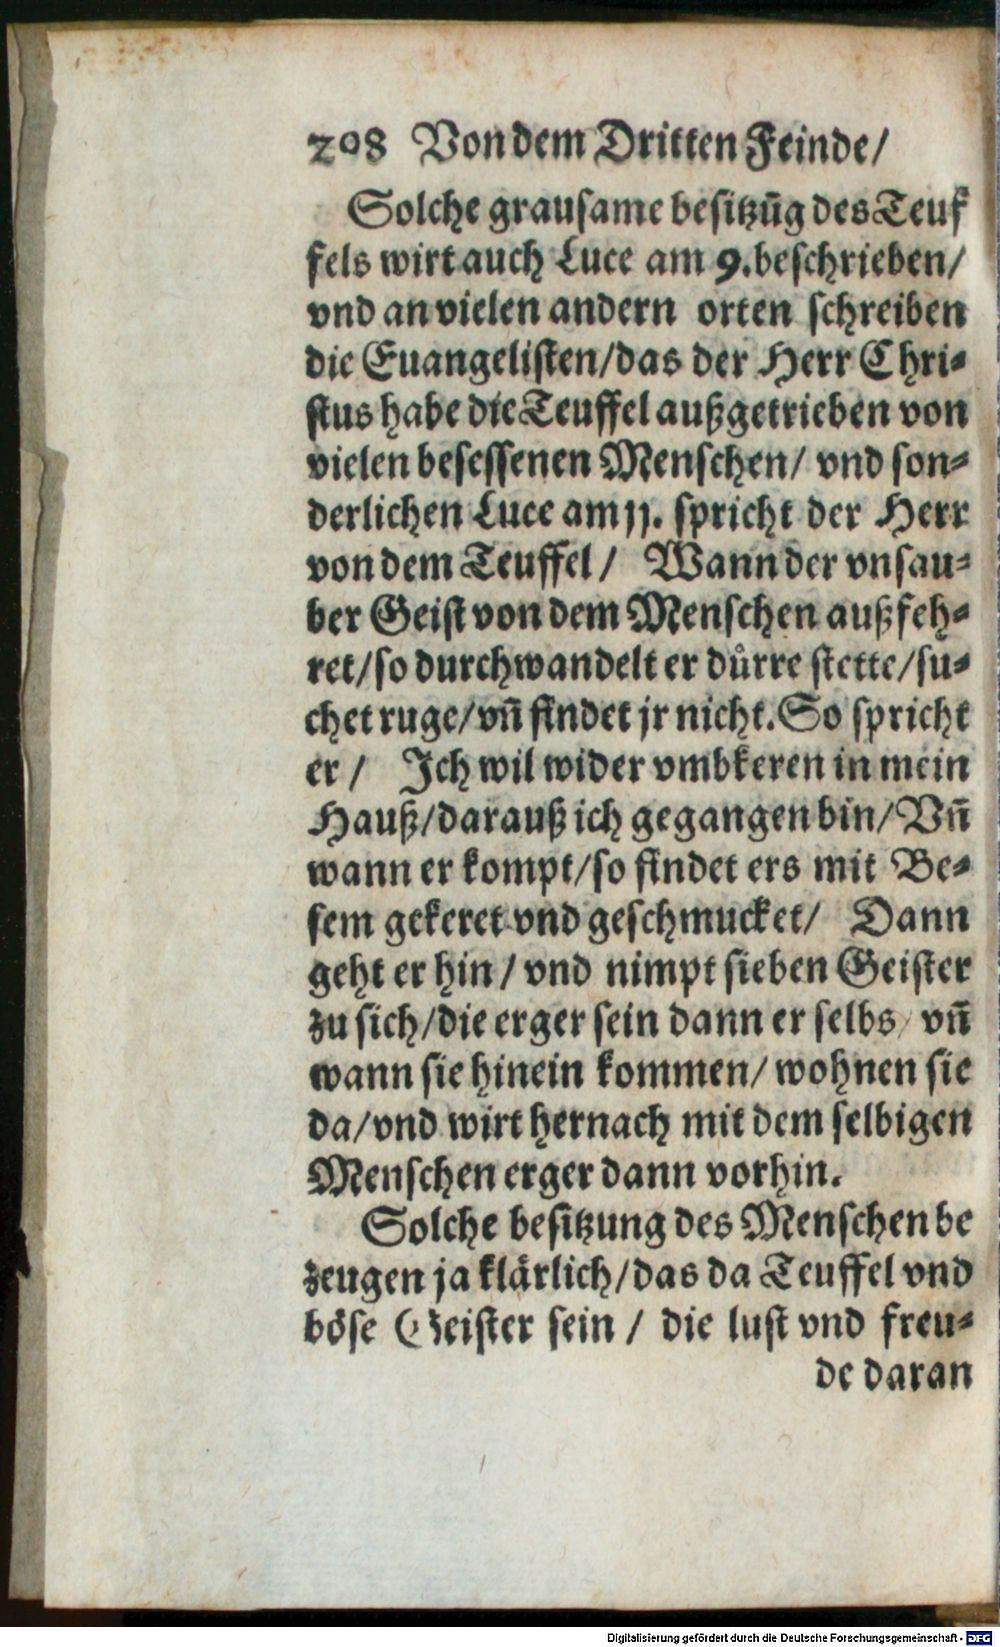 208 Von dem Dritten Feinde/
Solche grausame besitzūg des Teuf
fels wirt auch Luce am 9. beschrieben/
vnd an vielen andern orten schreiben
die Euangelisten/das der Herr Chri⸗
stus habe die Teuffel außgetrieben von
vielen besessenen Menschen/ vnd son⸗
derlichen Luce am 11. spricht der Herr
von dem Teuffel/ Wann der vnsau⸗
ber Geist von dem Menschen außfeh⸗
ret/so durchwandelt er dürre stette/su⸗
chet ruge/vn̄ findet jr nicht. So spricht
er/ Ich wil wider vmbkeren in mein
Hauß/darauß ich gegangen bin/Vn̄
wann er kompt/so findet ers mit Be⸗
sem gekeret vnd geschmucket/ Dann
geht er hin/ vnd nimpt sieben Geister
zu sich/die erger sein dann er selbs/ vn̄
wann sie hinein kommen/wohnen sie
da/vnd wirt hernach mit dem selbigen
Menschen erger dann vorhin.
Solche besitzung des Menschen be
zeugen ja klärlich/das da Teuffel vnd
böse Geister sein/ die lust vnd freu⸗
de daran
Digitalisierung gefördert durch die Deutsche Forschungsgemeinschaft - DFG